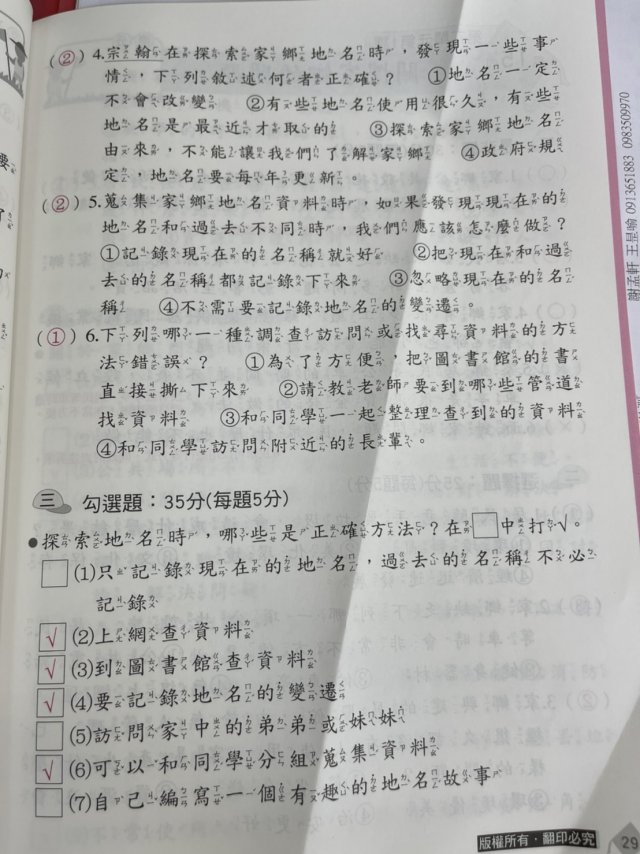 (②) 4.宗翰在探索家鄉地名時，發現一些事
情，下列敘述何者正確？　①地名一定
不會改變　②有些地名使用很久，有些
地名是最近才取的　③探索家鄉地名
由來，不能讓我們了解家鄉　④政府規
定，地名要每年更新。
(②) 5.蒐集家鄉地名資料時，如果發現現在的
地名和過去不同時，我們應該怎麼做？
①記錄現在的名稱就好　②把現在和過
去的名稱都記錄下來　③忽略現在的名
稱　④不需要記錄地名的變遷。
(①) 6.下列哪一種調查訪問或找尋資料的方
法錯誤？　①為了方便，把圖書館的書
直接撕下來　②請教老師要到哪些管道
找資料　③和同學一起整理查到的資料
④和同學訪問附近的長輩。
三 勾選題：35分(每題5分)
●探索地名時，哪些是正確方法？在□中打√。
□(1)只記錄現在的地名，過去的名稱不必
記錄
√(2)上網查資料
√(3)到圖書館查資料
√(4)要記錄地名的變遷
□(5)訪問家中的弟弟或妹妹
√(6)可以和同學分組蒐集資料
□(7)自己編寫一個有趣的地名故事
版權所有‧翻印必究 29
謝孟軒 0913651883 王昱喻 0983509970